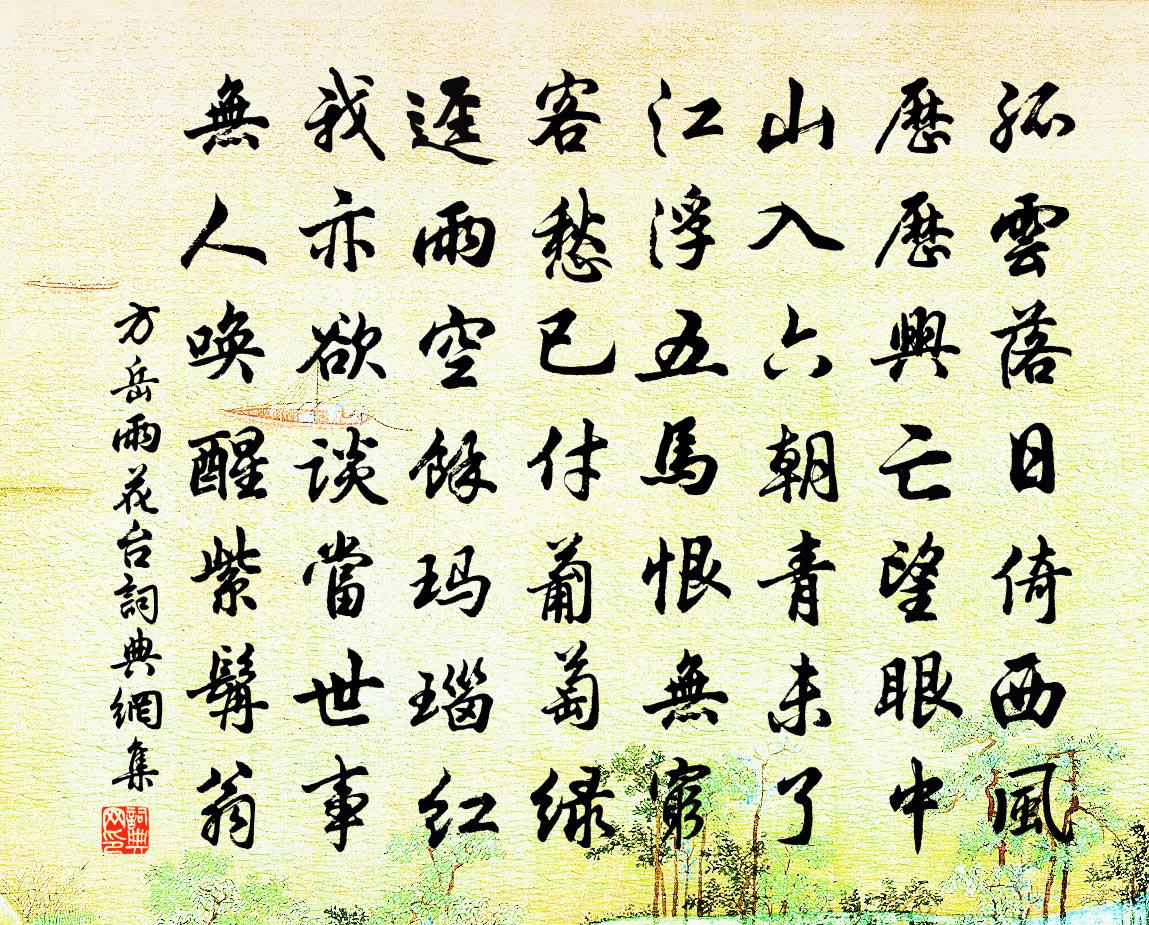 孤雲落日倚西風
歷歷興亡望眼中
山入六朝青未了
江浮五馬恨無窮
客愁已付葡萄綠
逕雨空餘玛瑙红
我亦欲談當世事
無人唤醒紫髯翁
方岳雨花台詞典網集
詞典网印